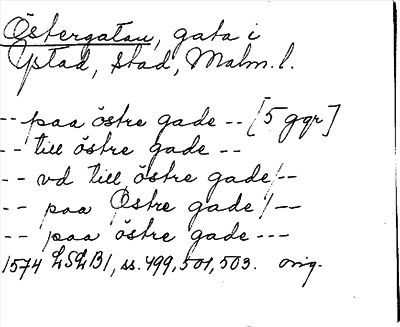 Östergatan, gata i
Ystad, stad, Malm. l.
-- paa östre gade -- [5 ggr]
-- till östre gade --
-- vd till östre gade/--
-- paa Østre gade/--
-- paa östre gade ---
1574 LSLB1, ss. 499, 501, 503. orig.